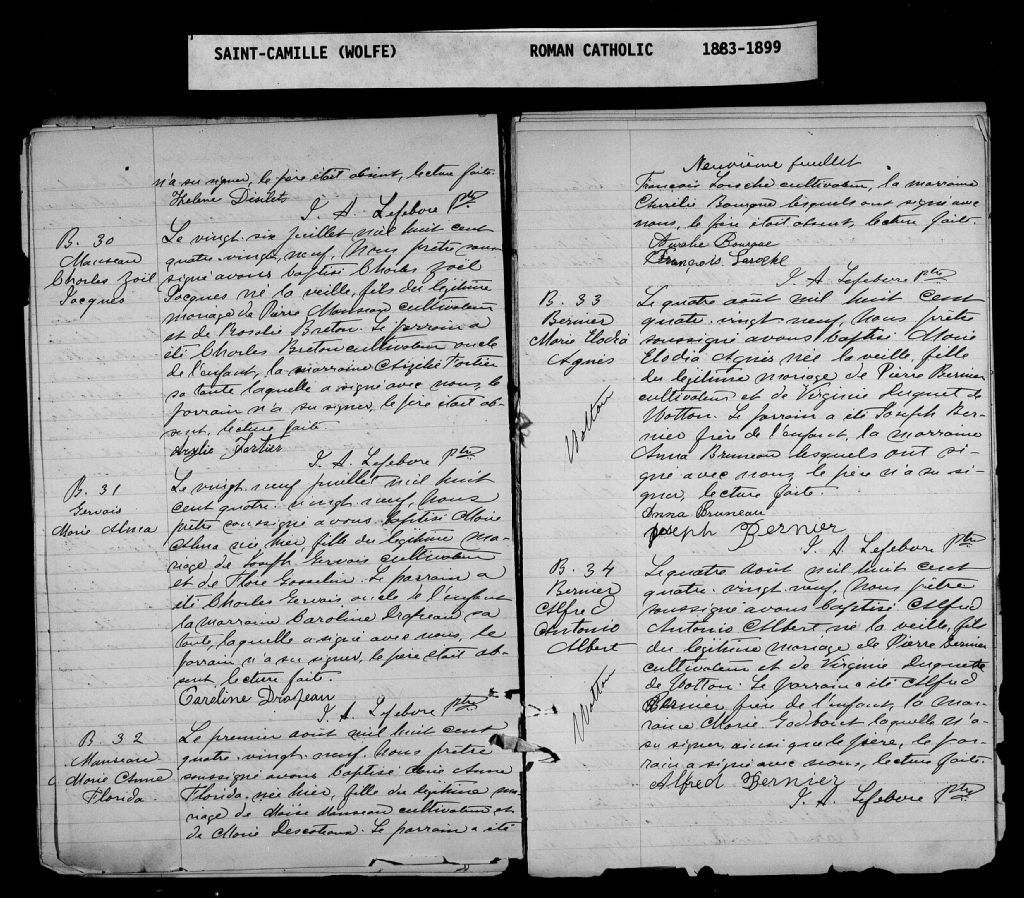 SAINT-CAMILLE (WOLFE) ROMAN CATHOLIC 1883-1899
n'a su signer, le père était absent, lecture faite.
Helene Désilets
J. A. Lefebvre Ptre
B. 30
Manseau
Charles Zoël
Jacques
Le vingt six juillet mil huit cent
quatre-vingt neuf, Nous prêtre sous-
signé avons baptisé Charles Zoël
Jacques né la veille, fils du légitime
mariage de Pierre Manseau cultivateur
et de Rosalie Breton. Le parrain a
été Charles Breton cultivateur oncle
de l'enfant, la marraine Fortier
sa tante laquelle a signé avec nous, le
parrain n'a su signer, le père était ab-
sent, lecture faite.
Fortier
J. A. Lefebvre ptre
B. 31
Gervais
Marie Alma
Le vingt neuf juillet mil huit
cent quatre-vingt neuf, Nous
prêtre soussigné avons baptisé Marie
Alma née hier, fille du légitime ma-
riage de Joseph Gervais cultivateur
et de Flore Gosselin. Le parrain a
été Charles Gervais oncle de l'enfant
la marraine Caroline Drapeau sa
tante, laquelle a signé avec nous, le
parrain n'a su signer, le père était ab-
sent lecture faite.
Caroline Drapeau
J. A. Lefebvre ptre
B. 32
Manseau
Marie Anne
Florida
Le premier août mil huit cent
quatre-vingt neuf, Nous prêtre
soussigné avons baptisé Marie Anne
Florida née hier, fille du légitime ma-
riage de Moïse Manseau cultivateur et
de Marie Descoteaux. Le parrain a été
Neuvième feuillet
François Laroche cultivateur, la marraine
Bourque lesquels ont signé avec
nous, le père était absent, lecture faite.
Bourque
François Laroche
J. A. Lefebvre Ptre
B. 33
Bernier
Marie Elodia
Agnès
Wotton
Le quatre août mil huit cent
quatre-vingt neuf, Nous prêtre
soussigné avons baptisé Marie
Elodia Agnès née la veille, fille
du légitime mariage de Pierre Bernier
cultivateur et de Virginie Duquet de
Wotton. Le parrain a été Joseph Ber-
nier frère de l'enfant, la marraine
Anna Bruneau lesquels ont si-
gné avec nous, le père n'a su si-
gner, lecture faite.
Anna Bruneau
Joseph Bernier
J. A. Lefebvre Ptre
B. 34
Bernier
Alfred
Antonio
Albert
Wotton
Le quatre août mil huit cent
quatre-vingt neuf, Nous prêtre
soussigné avons baptisé Alfred
Antonio Albert né la veille, fils
du légitime mariage de Pierre Bernier
cultivateur et de Virginie Duquette
de Wotton. Le parrain a été Alfred
Bernier frère de l'enfant, la mar-
raine Marie Godbout laquelle n'a
su signer, ainsi que le père, le par-
rain a signé avec nous, lecture faite.
Alfred Bernier
J. A. Lefebvre ptre